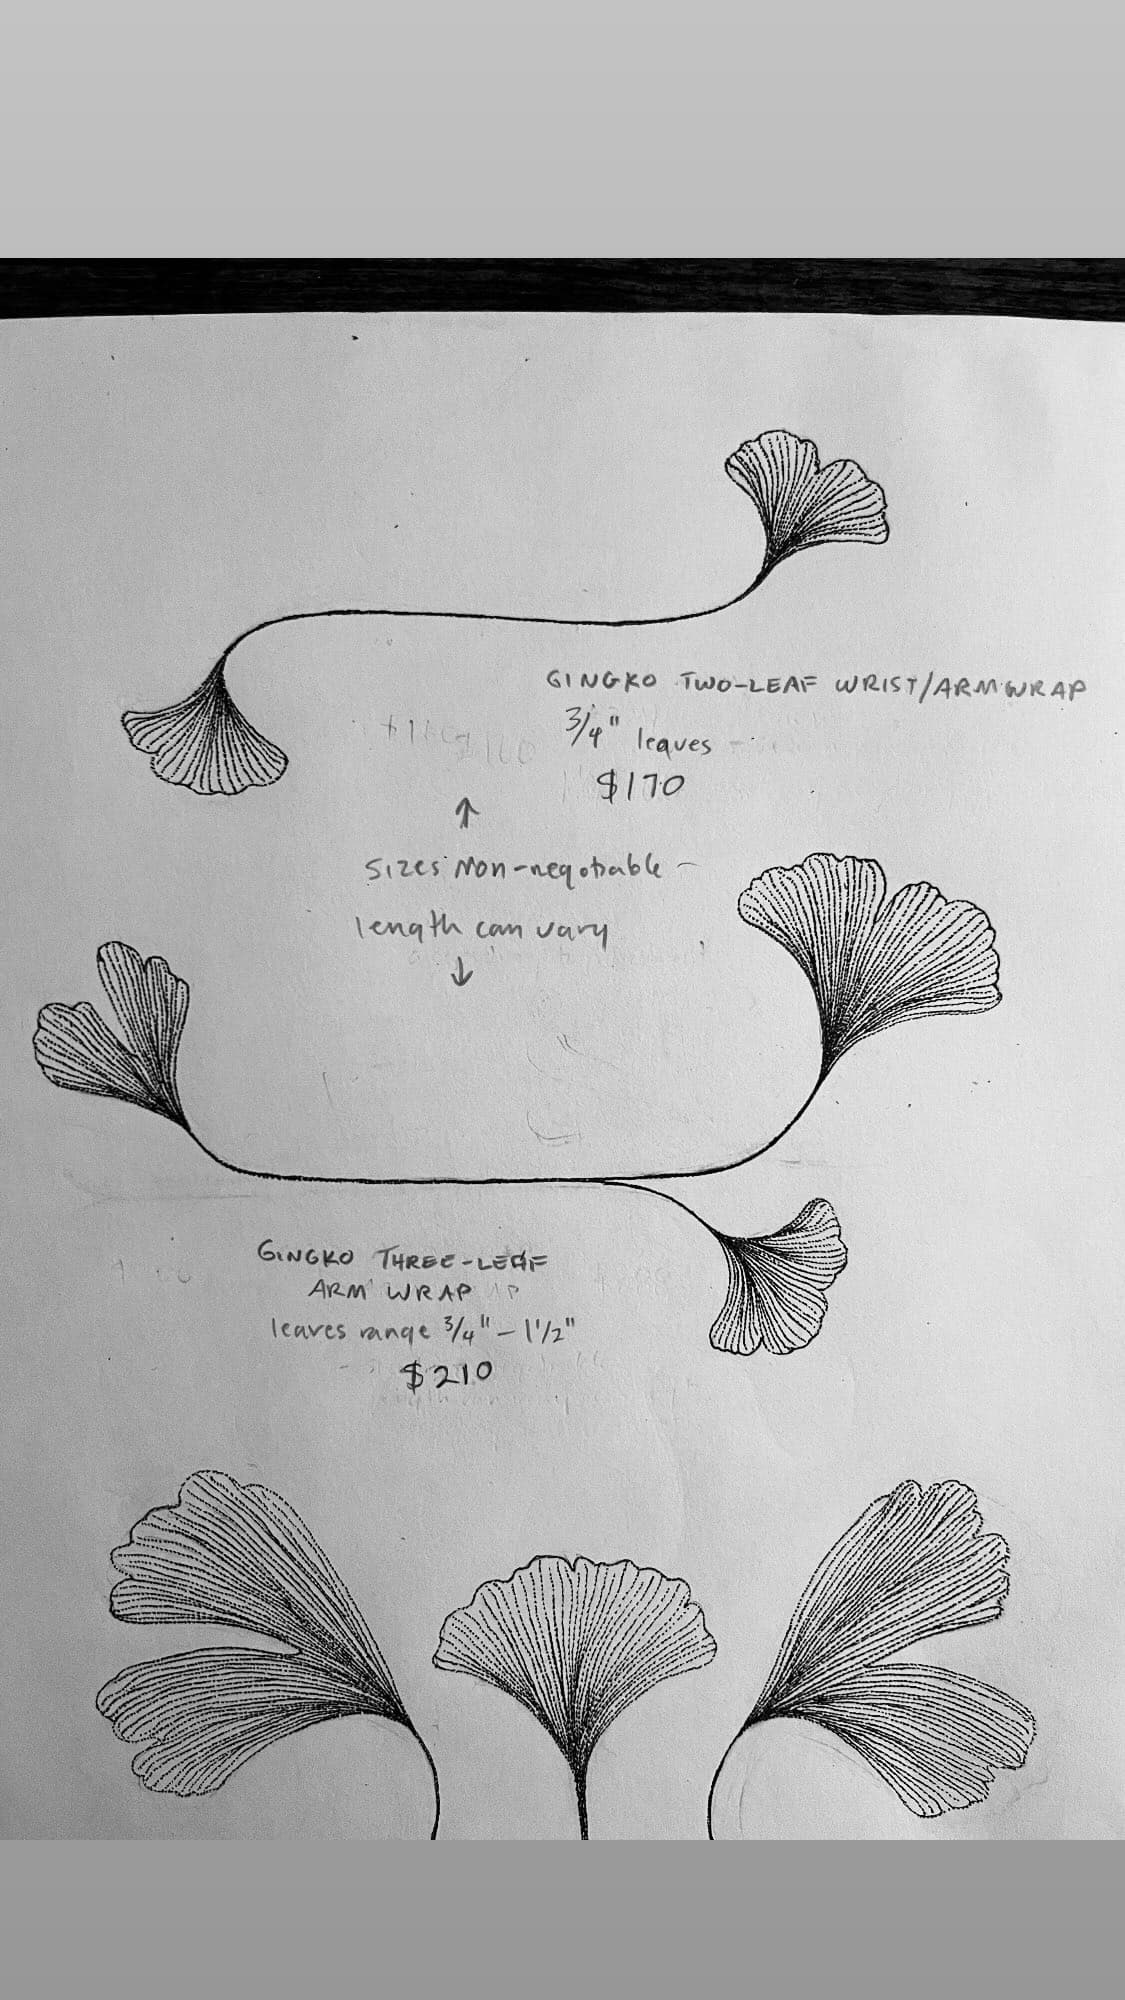 GINGKO TWO-LEAF WRIST/ARM WRAP
3/4" leaves
$170
↑
sizes non-negotiable -
length can vary
↓
GINGKO THREE-LEAF
ARM WRAP
leaves range 3/4" - 1 1/2"
$210